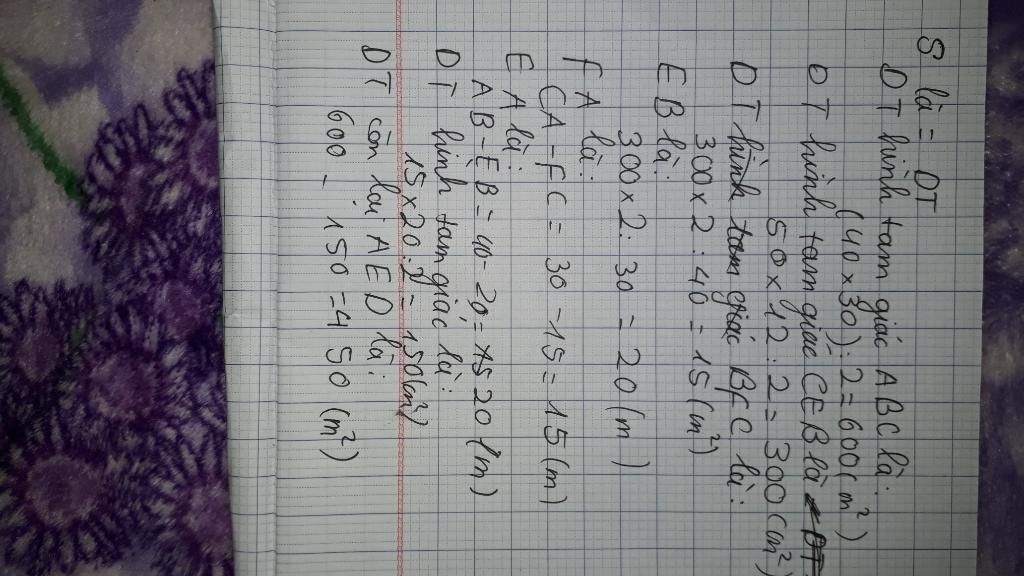 S là = DT
DT hình tam giác ABC là:
(40 x 30) : 2 = 600 (m²)
DT hình tam giác CEB là
50 x 12 : 2 = 300 (m²)
DT hình tam giác BFC là:
300 x 2 : 40 = 15 (m²)
EB là:
300 x 2 : 30 = 20 (m)
FA là:
CA - FC = 30 - 15 = 15 (m)
EA là:
AB - EB = 40 - 20 = 20 (m)
DT hình tam giác là:
15 x 20 : 2 = 150 (m²)
DT còn lại AED là:
600 - 150 = 450 (m²)